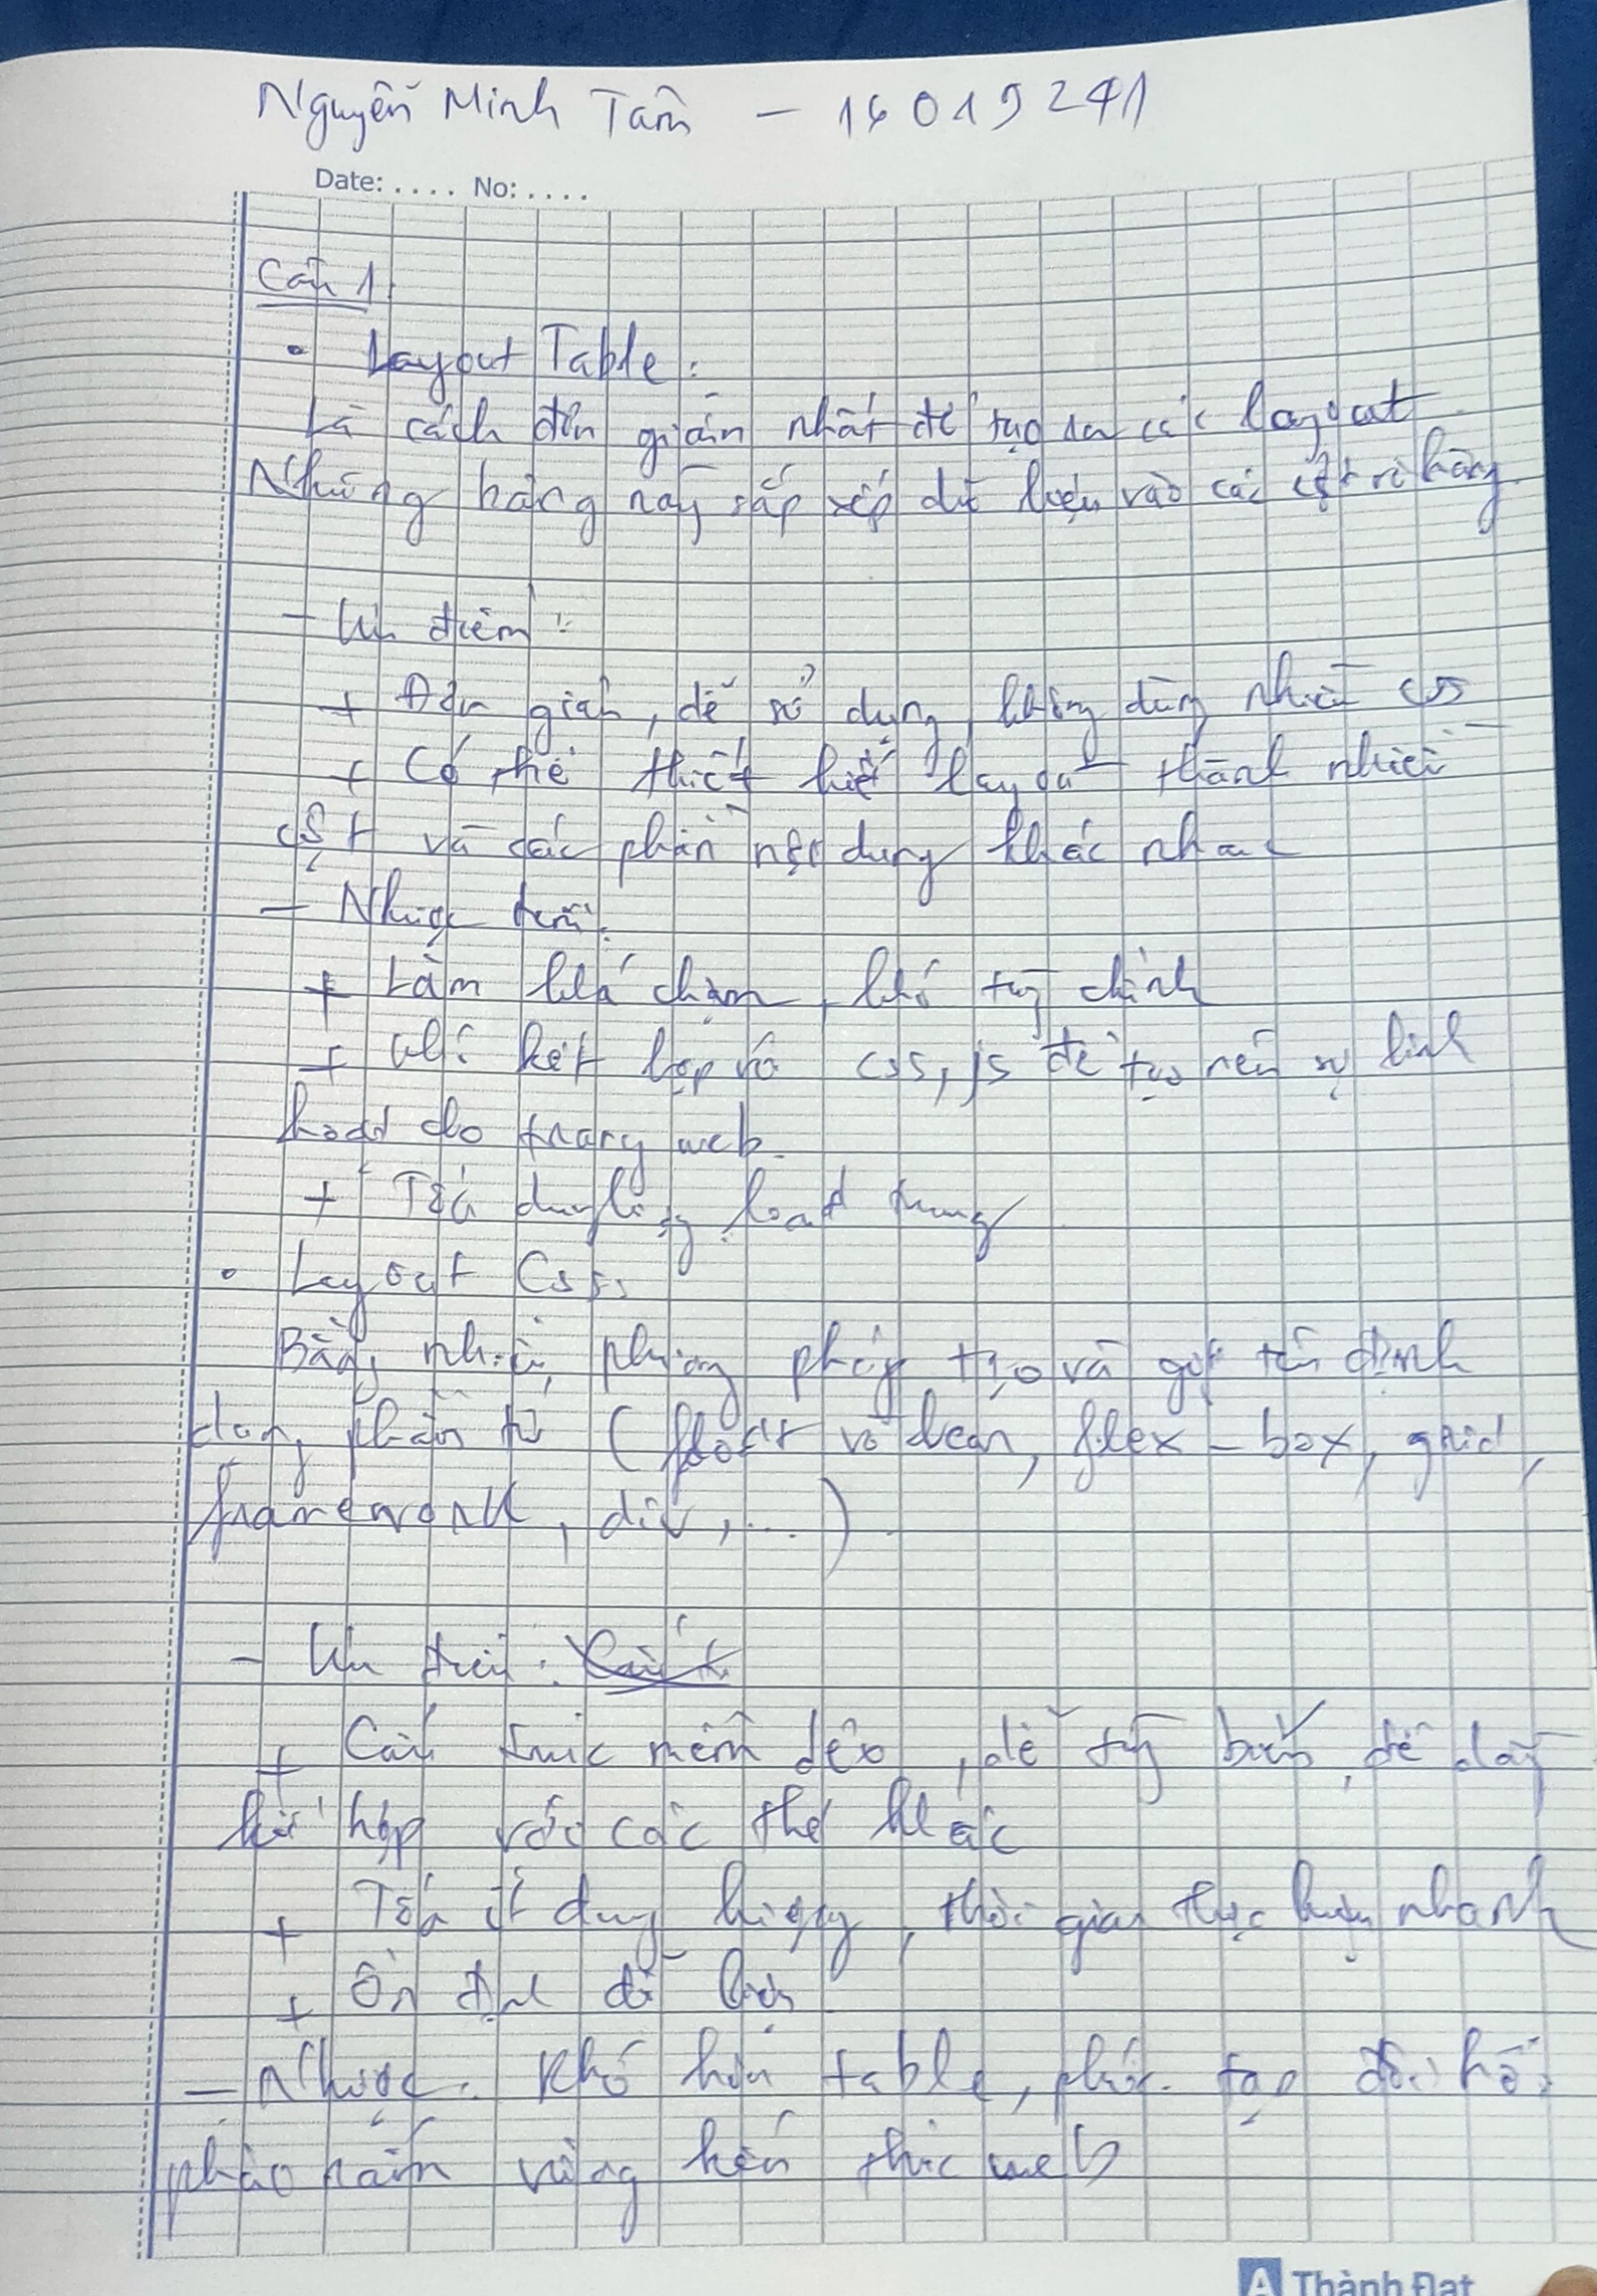 Nguyễn Minh Tâm - 16019241
Date: .... No: ....
Câu 1:
• Layout Table:
Là cách đơn giản nhất để tạo ra các layout
Những hàng này sắp xếp dữ liệu vào các cột và hàng.
- Ưu điểm:
+ Đơn giản, dễ sử dụng, không dùng nhiều css
+ Có thể thiết kế layout thành nhiều
cột và các phần nội dung khác nhau
- Nhược điểm:
+ Làm khá chậm, khó tùy chỉnh
+ Khó kết hợp với css, js để tạo nên sự linh
hoạt cho trang web.
+ Tốn dung lượng load trang
• Layout Css:
Bằng nhiều phương pháp tạo và gọi tên định
dạng phần tử (float và clear, flex-box, grid,
framework, div,...)
- Ưu điểm:
+ Cấu trúc mềm dẻo, dễ tùy biến, dễ dàng
kết hợp với các thẻ khác
+ Tốn ít dung lượng, thời gian thực hiện nhanh
+ Ổn định dữ liệu
- Nhược: Khó hơn table, phức tạp đòi hỏi
phải nắm vững kiến thức web
Thành Đạt